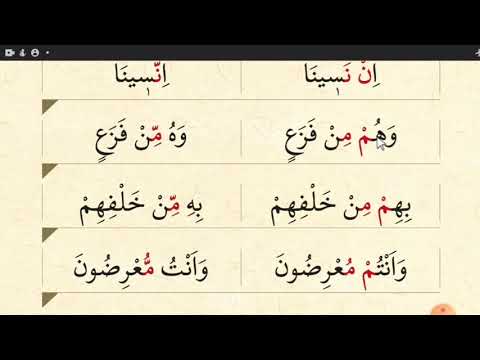 اِنْ نَسٖينَا اِنَّسٖينَا
وَهُمْ مِنْ فَزَعٍ وَهُ مِّنْ فَزَعٍ
بِهِمْ مِنْ خَلْفِهِمْ بِهِ مِّنْ خَلْفِهِمْ
وَاَنْتُمْ مُعْرِضُونَ وَاَنْتُ مُّعْرِضُونَ